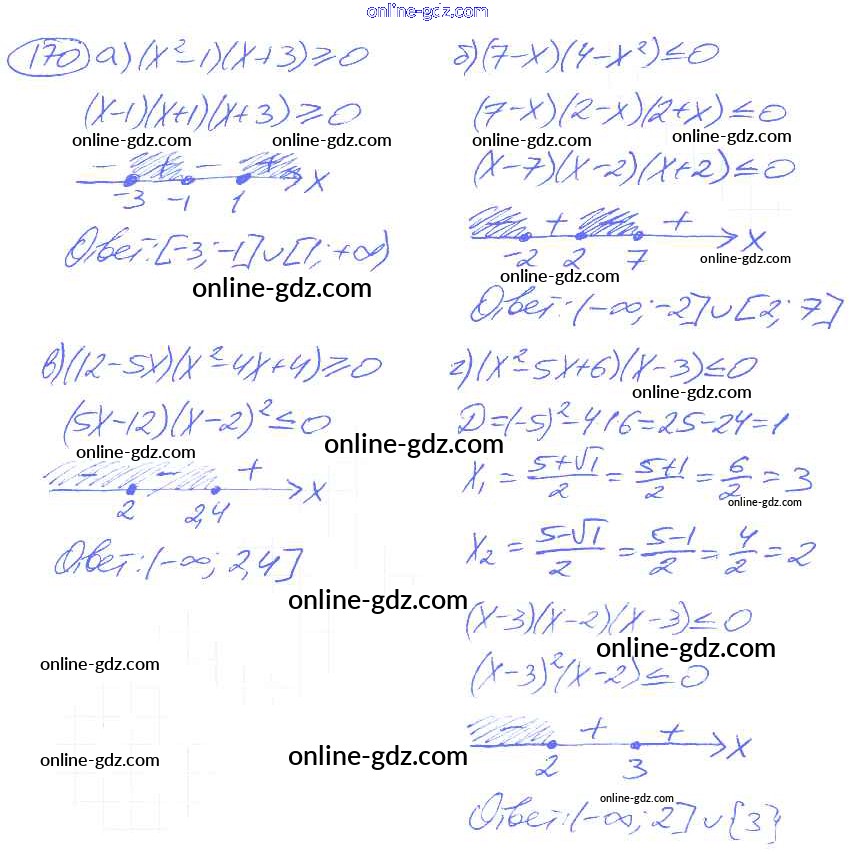 online-gdz.com
170 а) (x² - 1)(x + 3) ≥ 0
(x-1)(x+1)(x+3) ≥ 0
online-gdz.com online-gdz.com
- + - + x
-3 -1 1
Ответ: [-3; -1] ∪ [1; +∞)
online-gdz.com
б) (7-x)(4-x²) ≤ 0
(7-x)(2-x)(2+x) ≤ 0
online-gdz.com online-gdz.com
(x-7)(x-2)(x+2) ≤ 0
- + - + x
-2 2 7
online-gdz.com
online-gdz.com
Ответ: (-∞; -2] ∪ [2; 7]
в) (12-5x)(x²-4x+4) ≥ 0
(5x-12)(x-2)² ≤ 0
online-gdz.com
online-gdz.com
- - + x
2 2,4
Ответ: (-∞; 2,4]
online-gdz.com
online-gdz.com
online-gdz.com
online-gdz.com
г) (x²-5x+6)(x-3) ≤ 0
online-gdz.com
D = (-5)² - 4·1·6 = 25 - 24 = 1
x₁ = (5+√1)/2 = (5+1)/2 = 6/2 = 3
online-gdz.com
x₂ = (5-√1)/2 = (5-1)/2 = 4/2 = 2
(x-3)(x-2)(x-3) ≤ 0
online-gdz.com
(x-3)²(x-2) ≤ 0
- + + x
2 3
online-gdz.com
Ответ: (-∞; 2] ∪ {3}